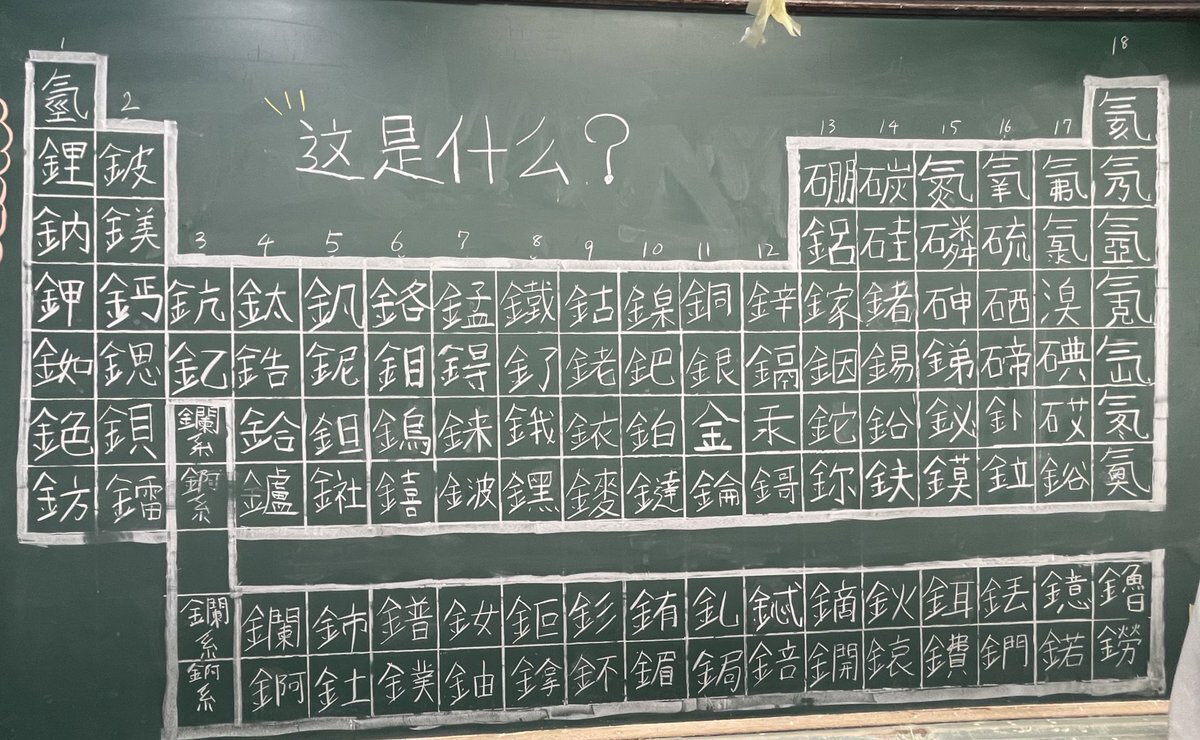 1 18
氫 2 这是什么? 氦
13 14 15 16 17
鋰 鈹 硼 碳 氮 氧 氟 氖
鈉 鎂 3 4 5 6 7 8 9 10 11 12 鋁 硅 磷 硫 氯 氬
鉀 鈣 鈧 鈦 釩 鉻 錳 鐵 鈷 鎳 銅 鋅 鎵 鍺 砷 硒 溴 氪
銣 鍶 釔 鋯 鈮 鉬 鍀 釕 銠 鈀 銀 鎘 銦 錫 銻 碲 碘 氙
銫 鋇 鑭系 鉿 鉭 鎢 錸 鋨 銥 鉑 金 汞 鉈 鉛 鉍 釙 砹 氡
鈁 鐳 錒系 鑪 𨧀 𨭎 𨨏 𨭆 䥑 鐽 錀 鎶 鉨 鈇 鏌 鉝 鋊 鿫
鑭系 鑭 鈰 鐠 釹 鉕 釤 銪 釓 鋱 鏑 鈥 鉺 銩 鐿 鑥
錒系 錒 釷 鏷 鈾 鎿 鈈 鎇 鋦 錇 鐦 鎄 鐨 鍆 鍩 鐒